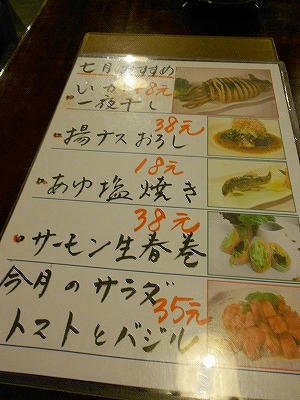 七月おすすめ
いか 8元
一夜干し
38元
揚ナスおろし
18元
あゆ塩焼き
38元
サーモン生春巻
今月のサラダ
35元
トマトとバジル